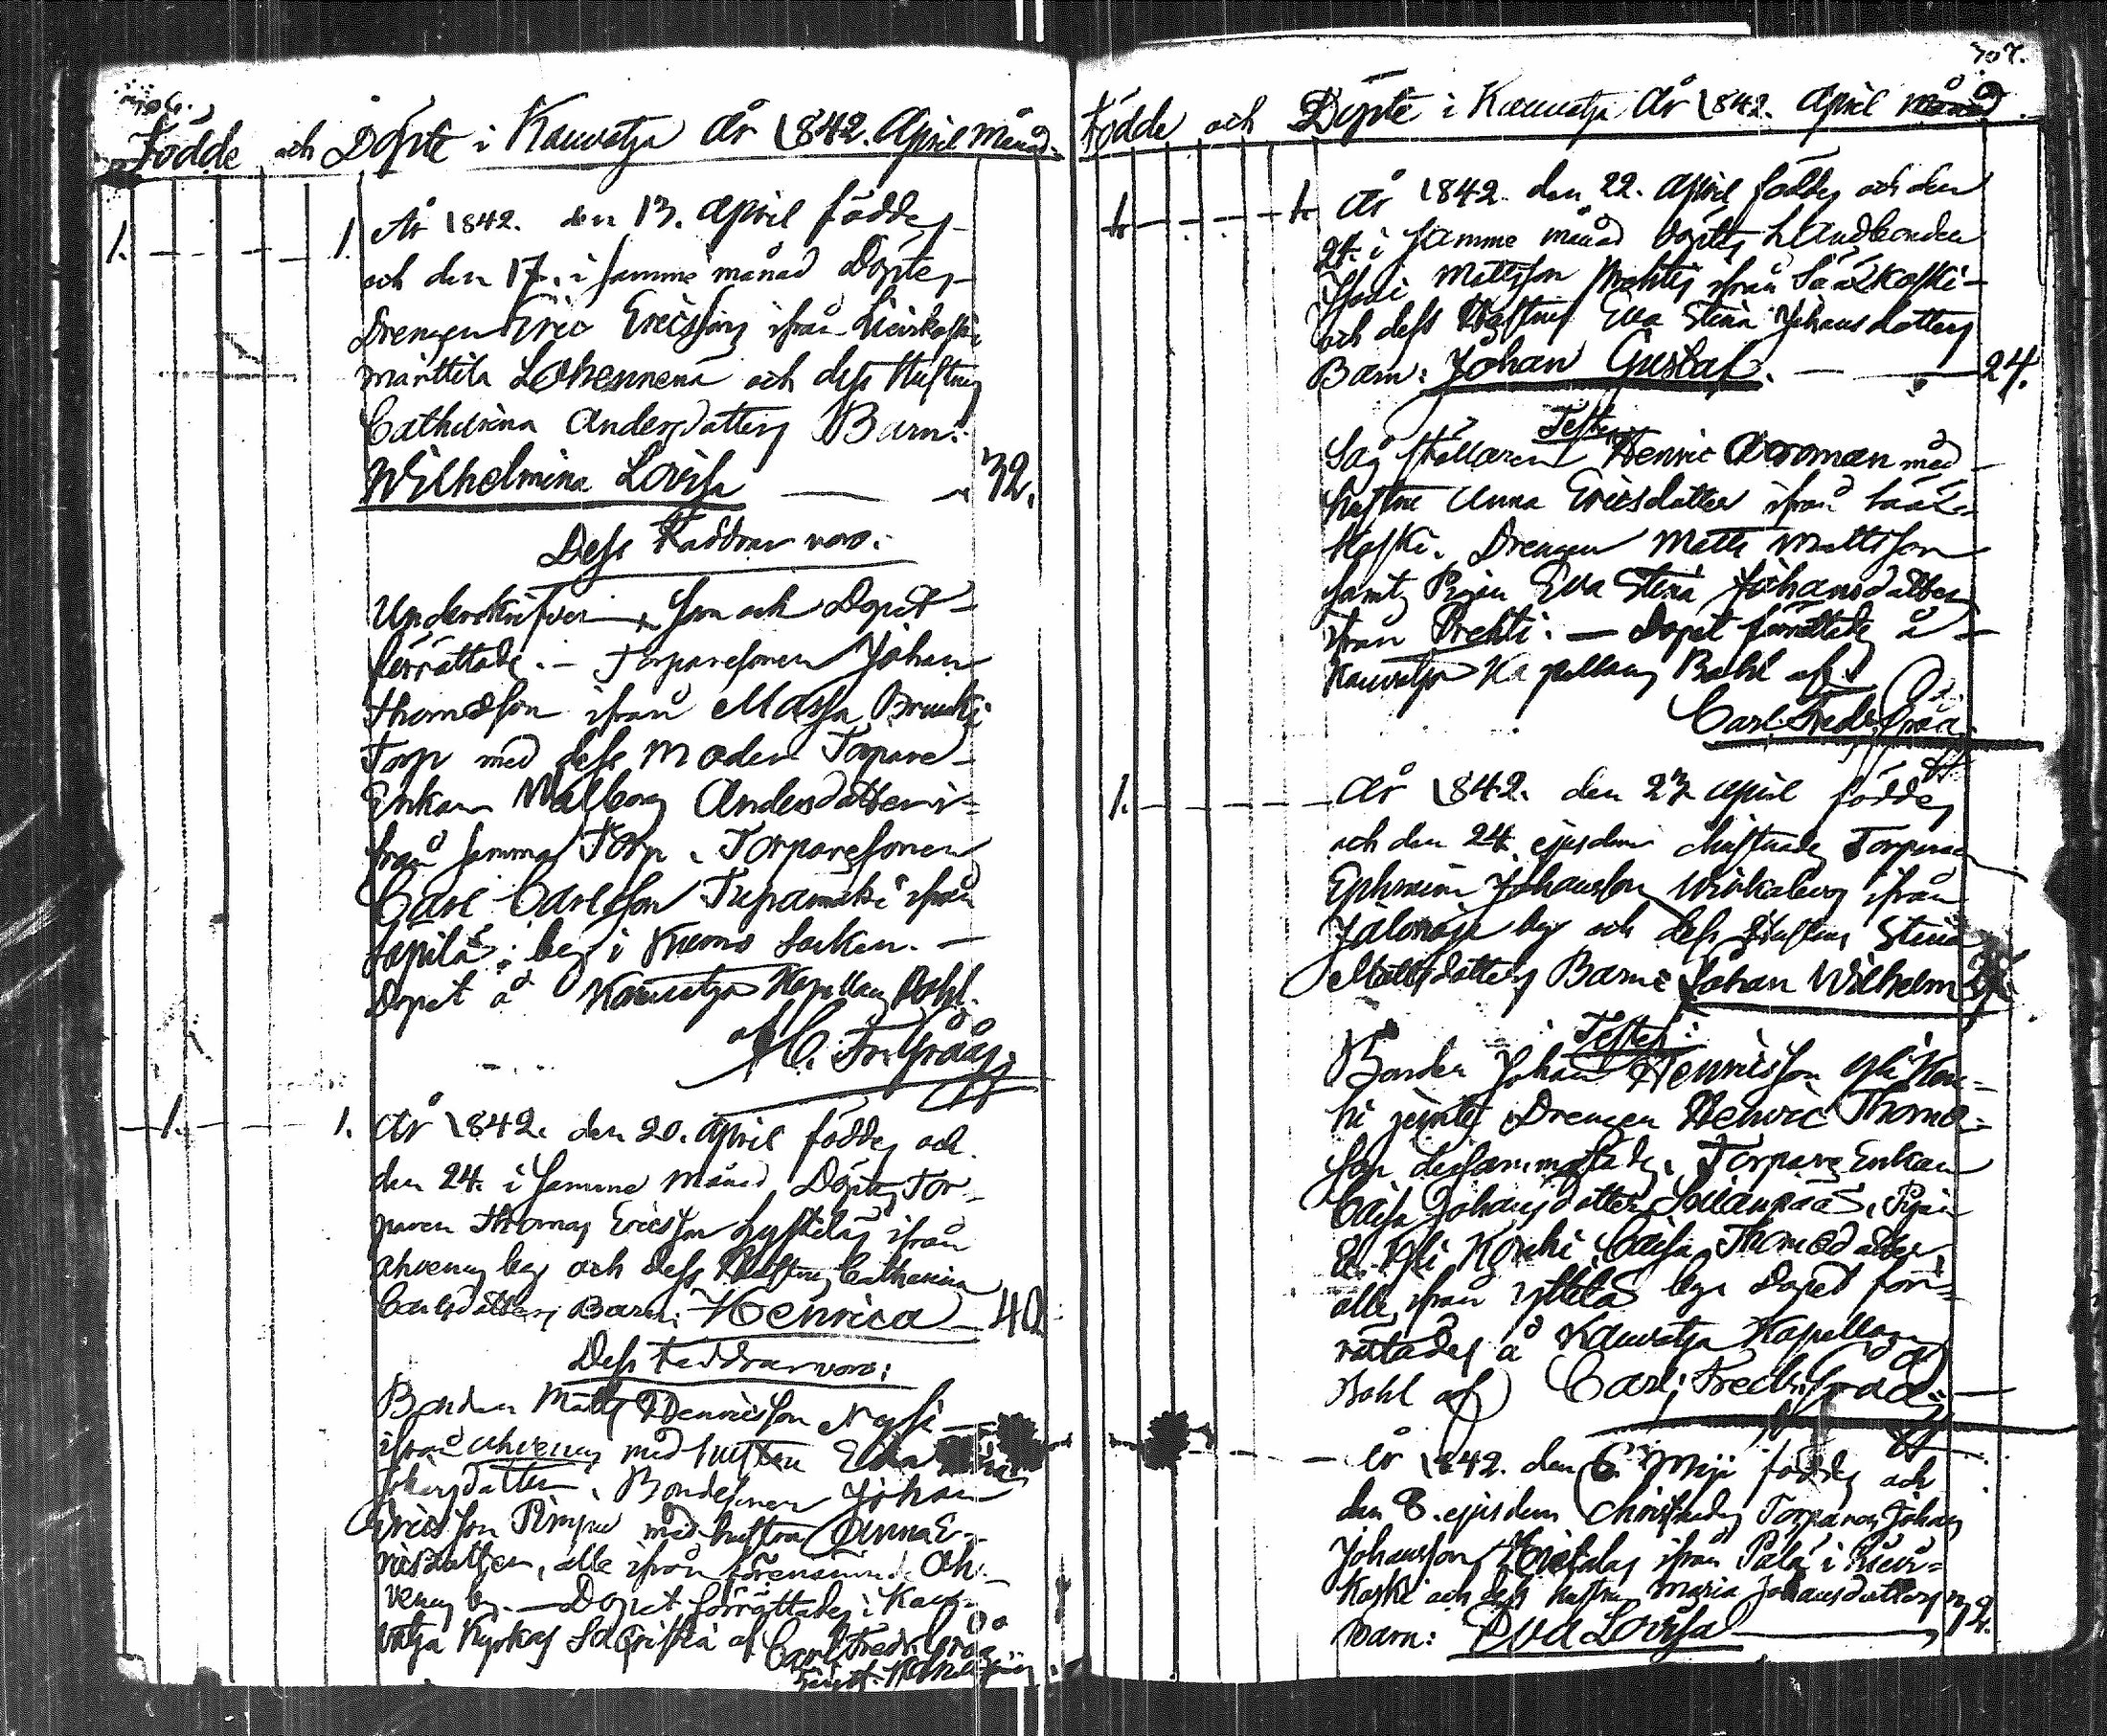 706.
Födde och Döpte i Kauvatsa År 1842. April Månad.
1. 1. År 1842. den 13. April föddes
och den 17. i samme månad Döptes
Drengen Eric Ericssons ifrån
Marttila och dess Hustrus
Catharina Andersdotters Barn:
Wilhelmina Lovisa — 32.
Dess Faddrar voro:
Underskrifven, som och Dopet
förrättade. — Torparesonen Johan
Thomasson ifrån
Torp med dess Moder Torpare-
Enkan Walborg Andersdotter i-
från samma Torp. Torparesonen
Carl Carlsson ifrån
by i Kumo Socken. —
Dopet å Kauvatsa Kapellans Bohl.
af C. Fr. Gråå
1. 1. År 1842. den 20. April föddes och
den 24. i samme Månad Döptes Tor-
paren Thomas Ericsson ifrån
Ahvenus by och dess Hustrus Catharina
Carlsdotters Barn: Henrica — 40.
Dess Faddrar voro:
Bonden Matts Henricsson
ifrån Ahvenus med hustru
Johansdotter. Bondesonen Johan
Ericsson Pimpu med hustru Anna E-
ricsdotter, alle ifrån förenämnde Ah-
venus by. — Dopet förrättades i Kau-
vatsa Kyrkas Sacristia af Carl Fredr. Gråå
707.
Födde och Döpte i Kauvatsa År 1842. April Månad
1. 1. År 1842. den 22. April föddes och den
24. i samme månad Döptes Landbonden
Mattsson Prehtis ifrån Sääxkoski
och dess Hustrus Eva Stina Johansdotters
Barn: Johan Gustaf. — 24.
Testes
Sågställaren Henric med
hustru Anna Ericsdotter ifrån Sääx-
koski. Drengen Matts Mattsson
samt Pigan Eva Stina Johansdotter
ifrån Prehti. — Dopet förrättades å
Kauvatsa Kapellans Bohl af
Carl Fredr. Gråå
1. År 1842. den 23 April föddes
och den 24. ejusdem christnades Torparen
Ephraim Johansson ifrån
Jalonoja by och dess Hustrus Stina
Mattsdotters Barn: Johan Wilhelm
Testes:
Bonden Johan Henricsson Yli Kou-
ki jemte Drengen Henric Thoma-
son dersammastädes. Torpare Enkan
Cajsa Johansdotter Pigan
Yli Kouki Cajsa Thomasdotter,
alle ifrån Yttilä by. Dopet för-
rättades å Kauvatsa Kapellans
Bohl af Carl Fredr. Gråå
År 1842. den 6. Maji föddes och
den 8. ejusdem Christnades Torparen Johan
Johansson ifrån i
koski och dess hustrus Maria Johansdotters
Barn: Eva Lovisa — 32.